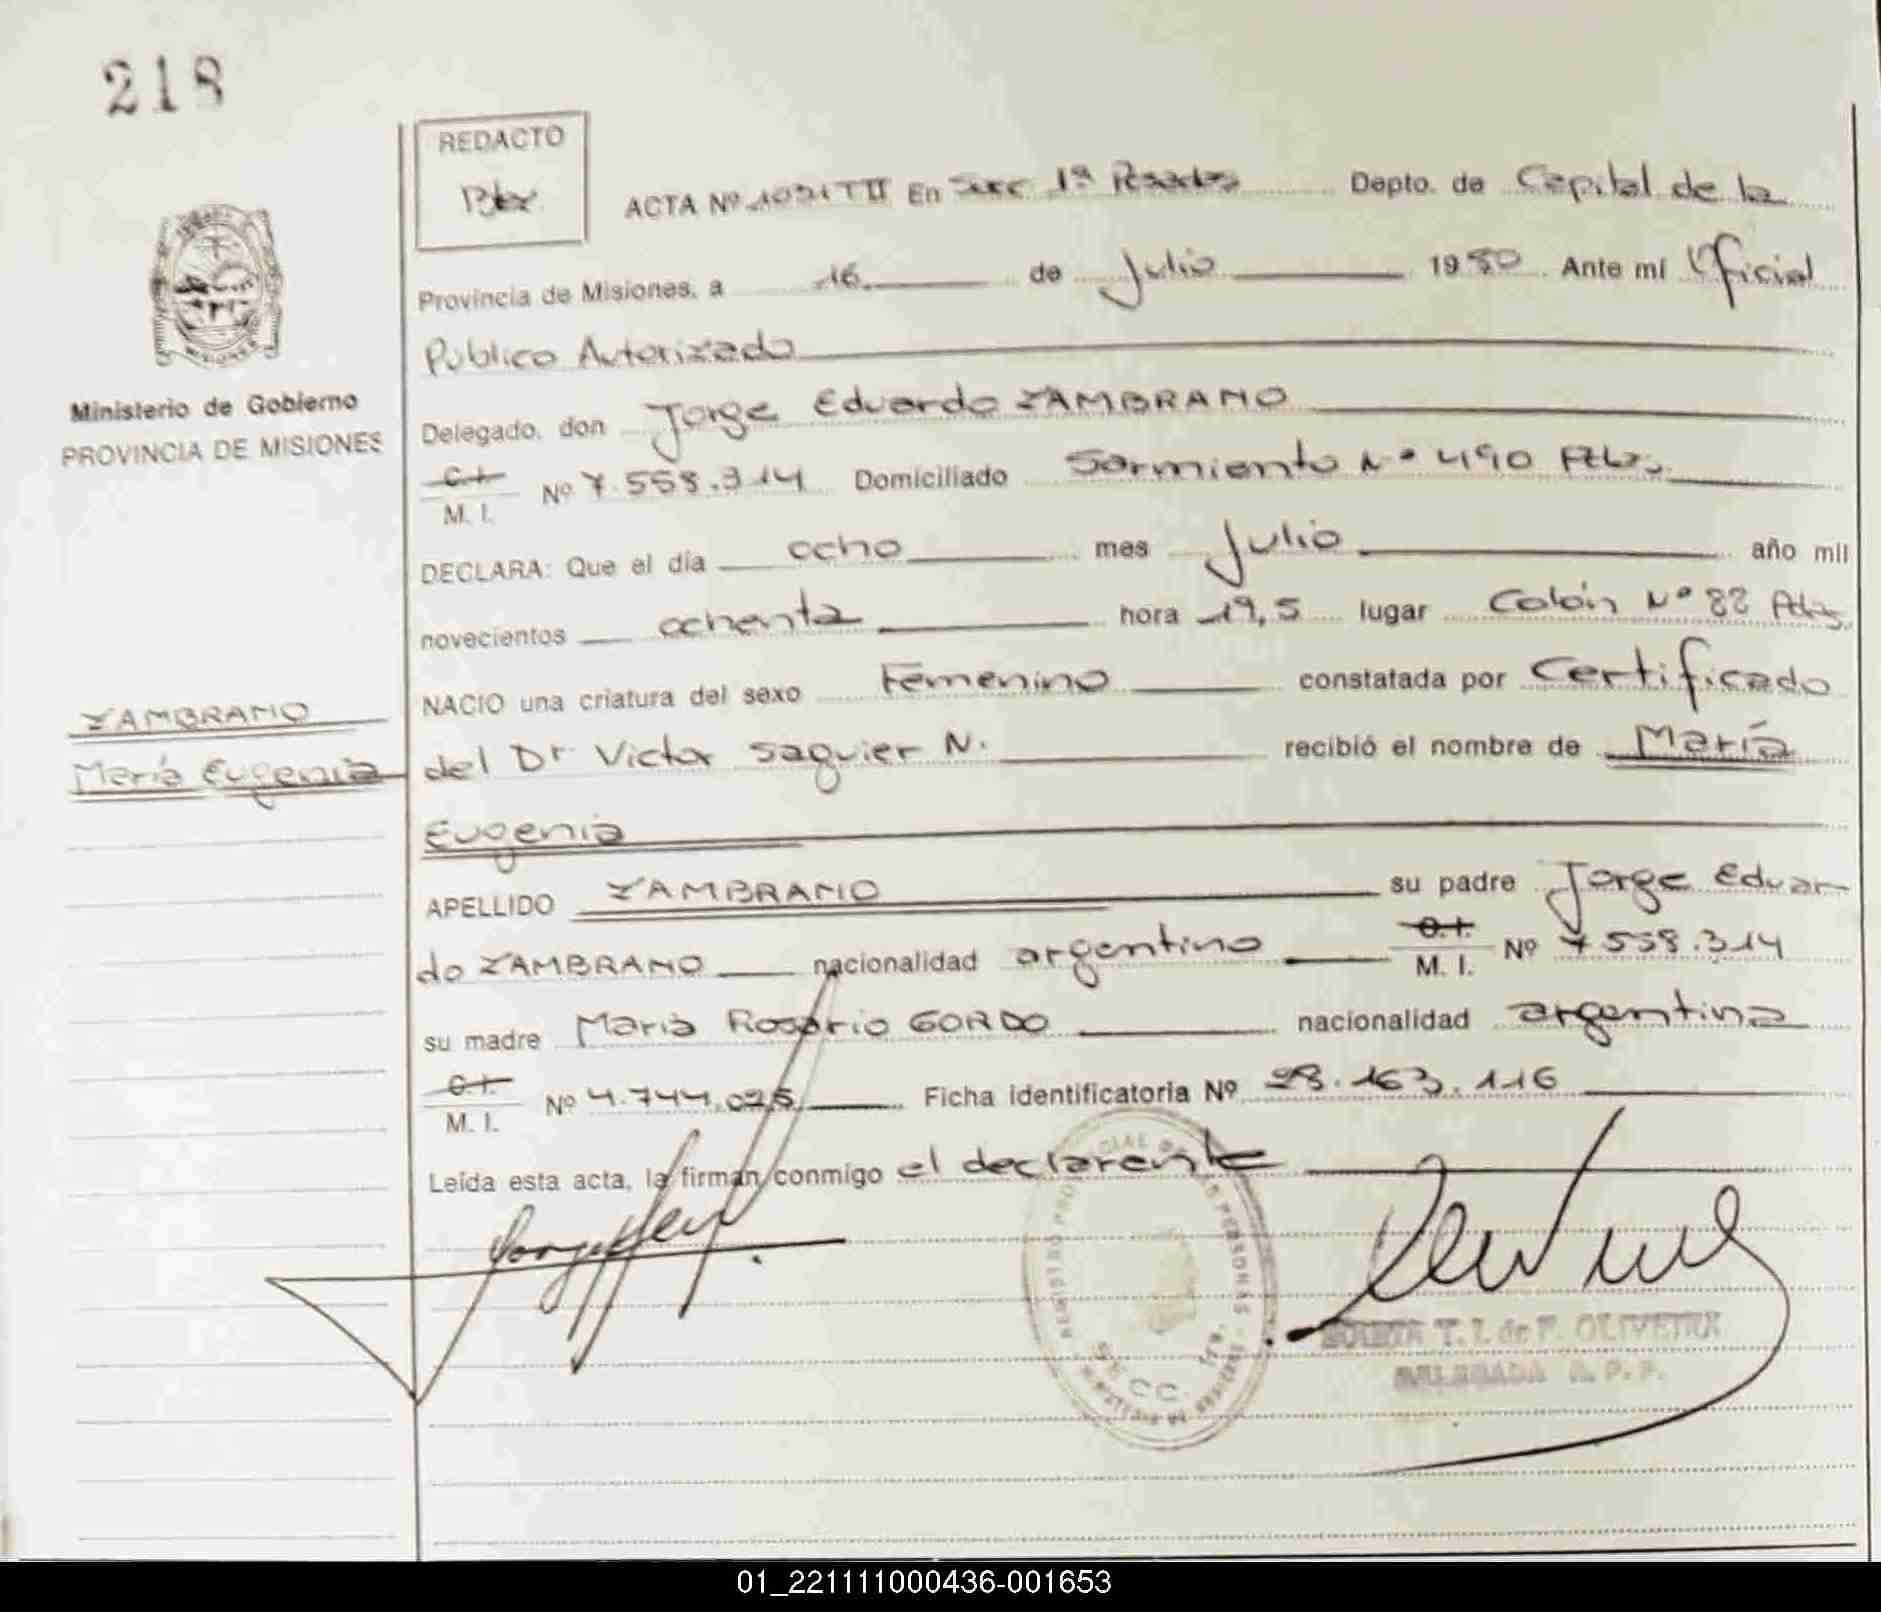 218
REDACTO
ACTA Nº 1031 TII En Secc 1ª Posadas Depto. de Capital de la
Provincia de Misiones, a 16 de Julio 1980 Ante mí Oficial
Publico Autorizado
Ministerio de Gobierno
PROVINCIA DE MISIONES
Delegado, don Jorge Eduardo ZAMBRANO
C.I. M. I. Nº 7.558.314 Domiciliado Sarmiento Nº 490 Pdas.
DECLARA: Que el día ocho mes Julio año mil
novecientos ochenta hora 19,5 lugar Colón Nº 22 Pdas.
NACIO una criatura del sexo Femenino constatada por Certificado
ZAMBRANO
María Eugenia
del Dr Victor Saguier N. recibió el nombre de María
Eugenia
APELLIDO ZAMBRANO su padre Jorge Eduar-
do ZAMBRANO nacionalidad argentino C.I. M. I. Nº 7558.314
su madre María Rosario GORDO nacionalidad argentina
C.I. M. I. Nº 4.744.025 Ficha identificatoria Nº 28.163.116
Leída esta acta, la firman conmigo el declarante
REGISTRO PROVINCIAL DE LAS PERSONAS
T. I. de F. OLIVEIRA
DELEGADA R. P. P.
01_221111000436-001653